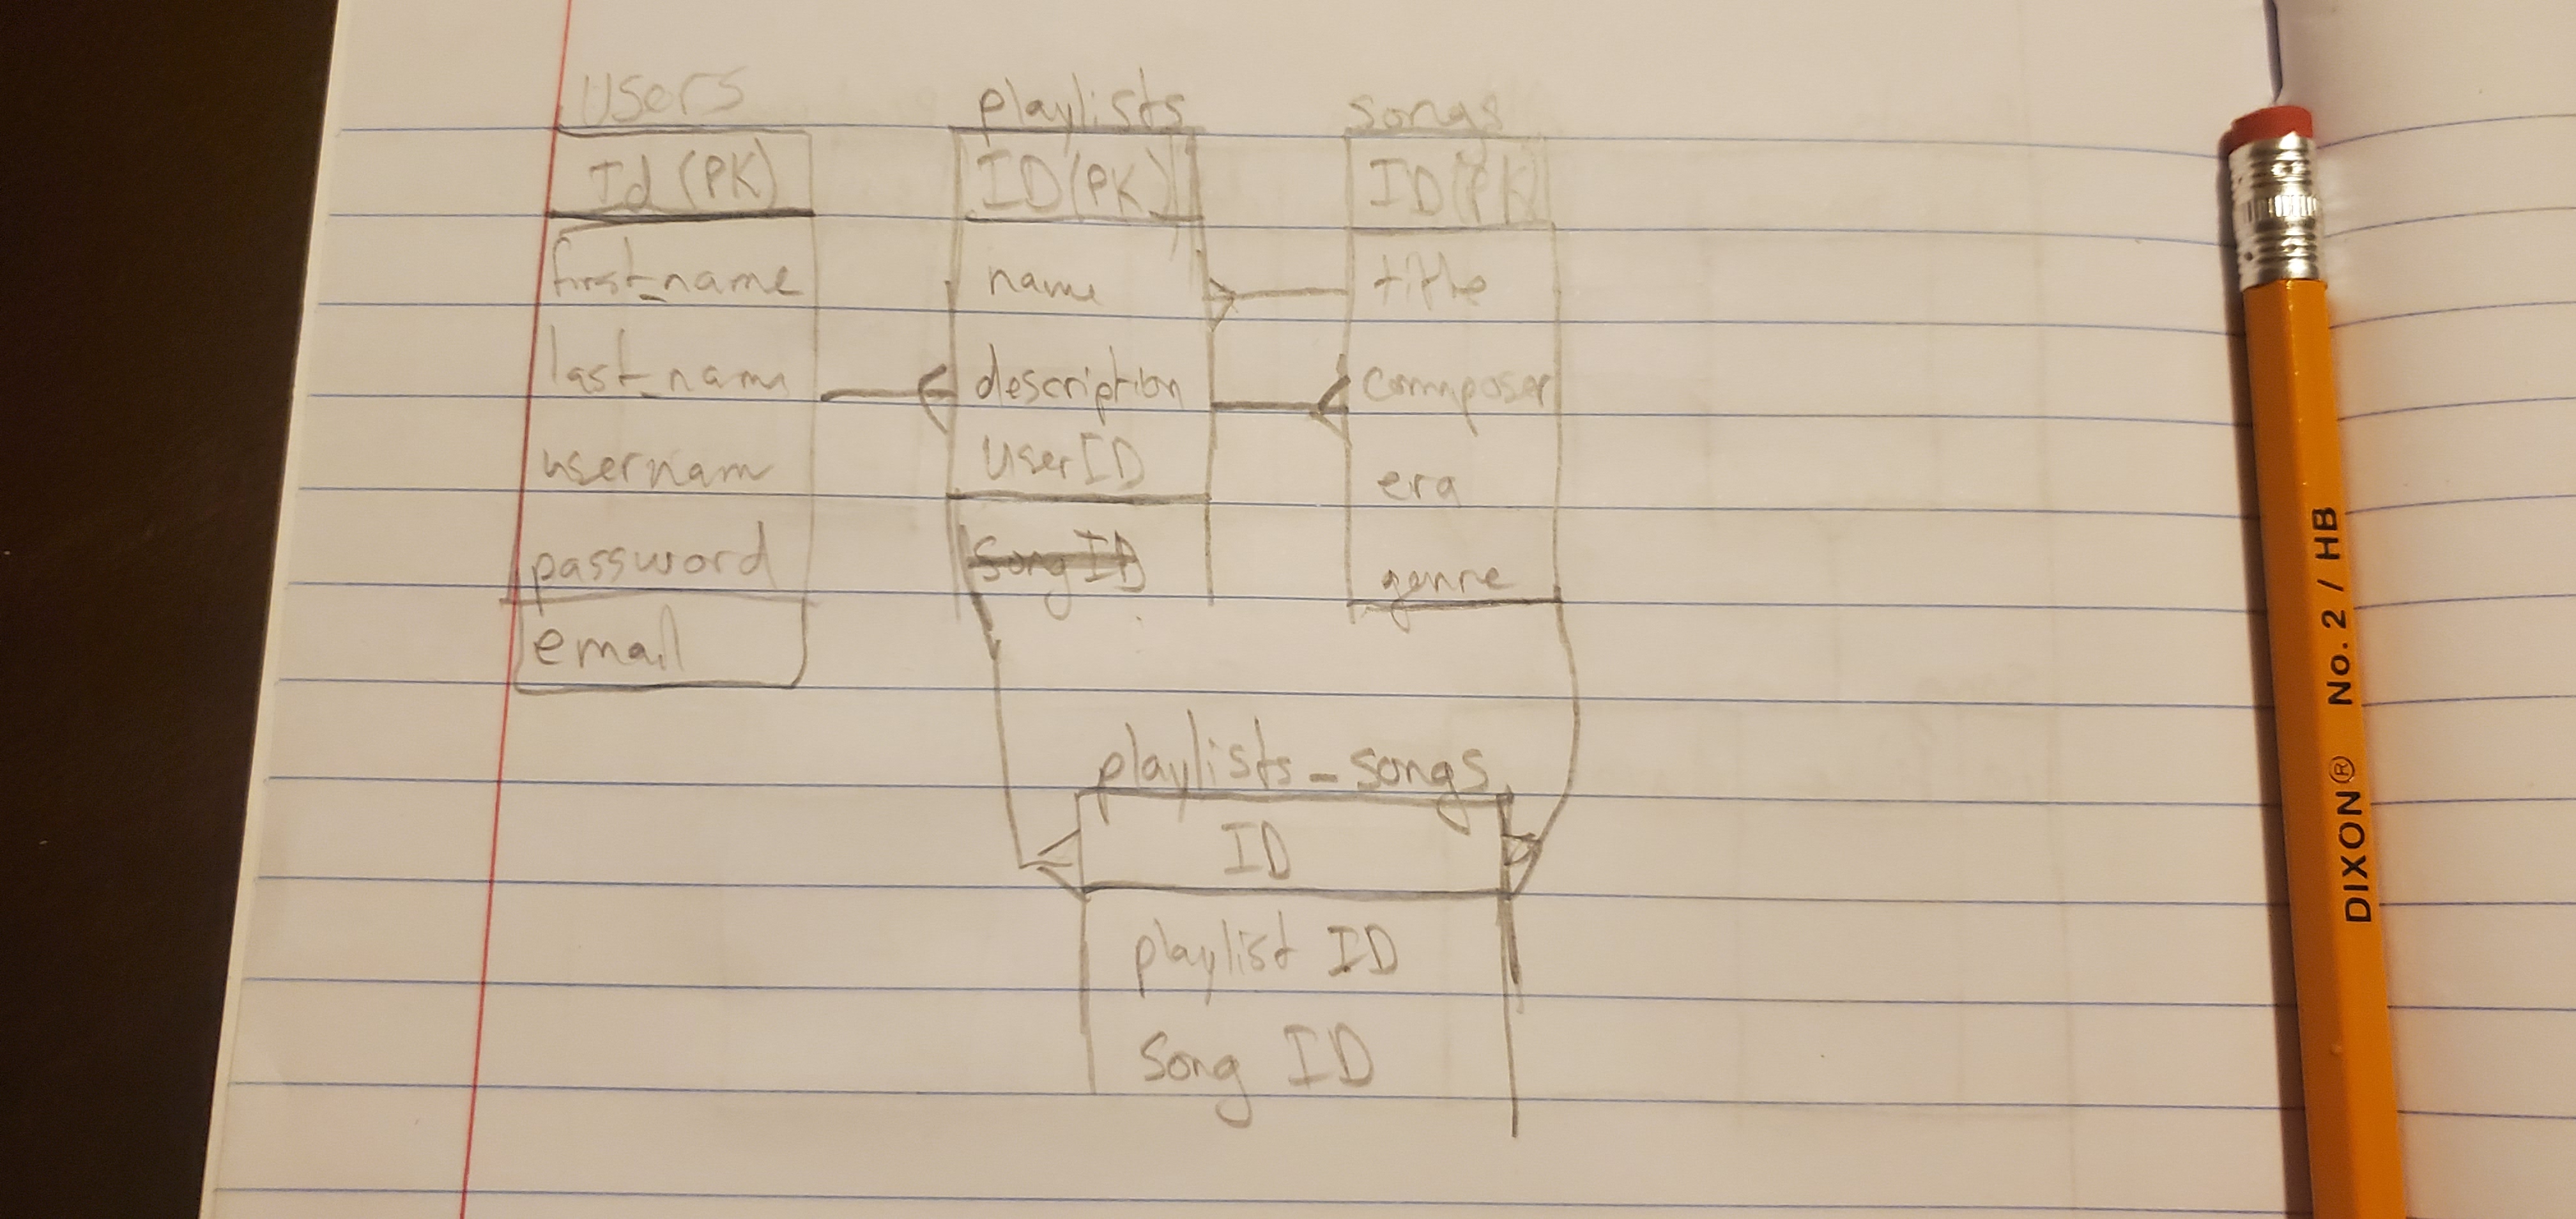 users
Id (PK)
first_name
last_name
usernam
password
email
playlists
ID(PK)
name
description
userID
song ID
songs
ID(PK)
title
composer
era
genre
playlists_songs
ID
playlist ID
song ID
DIXON® No. 2 / HB